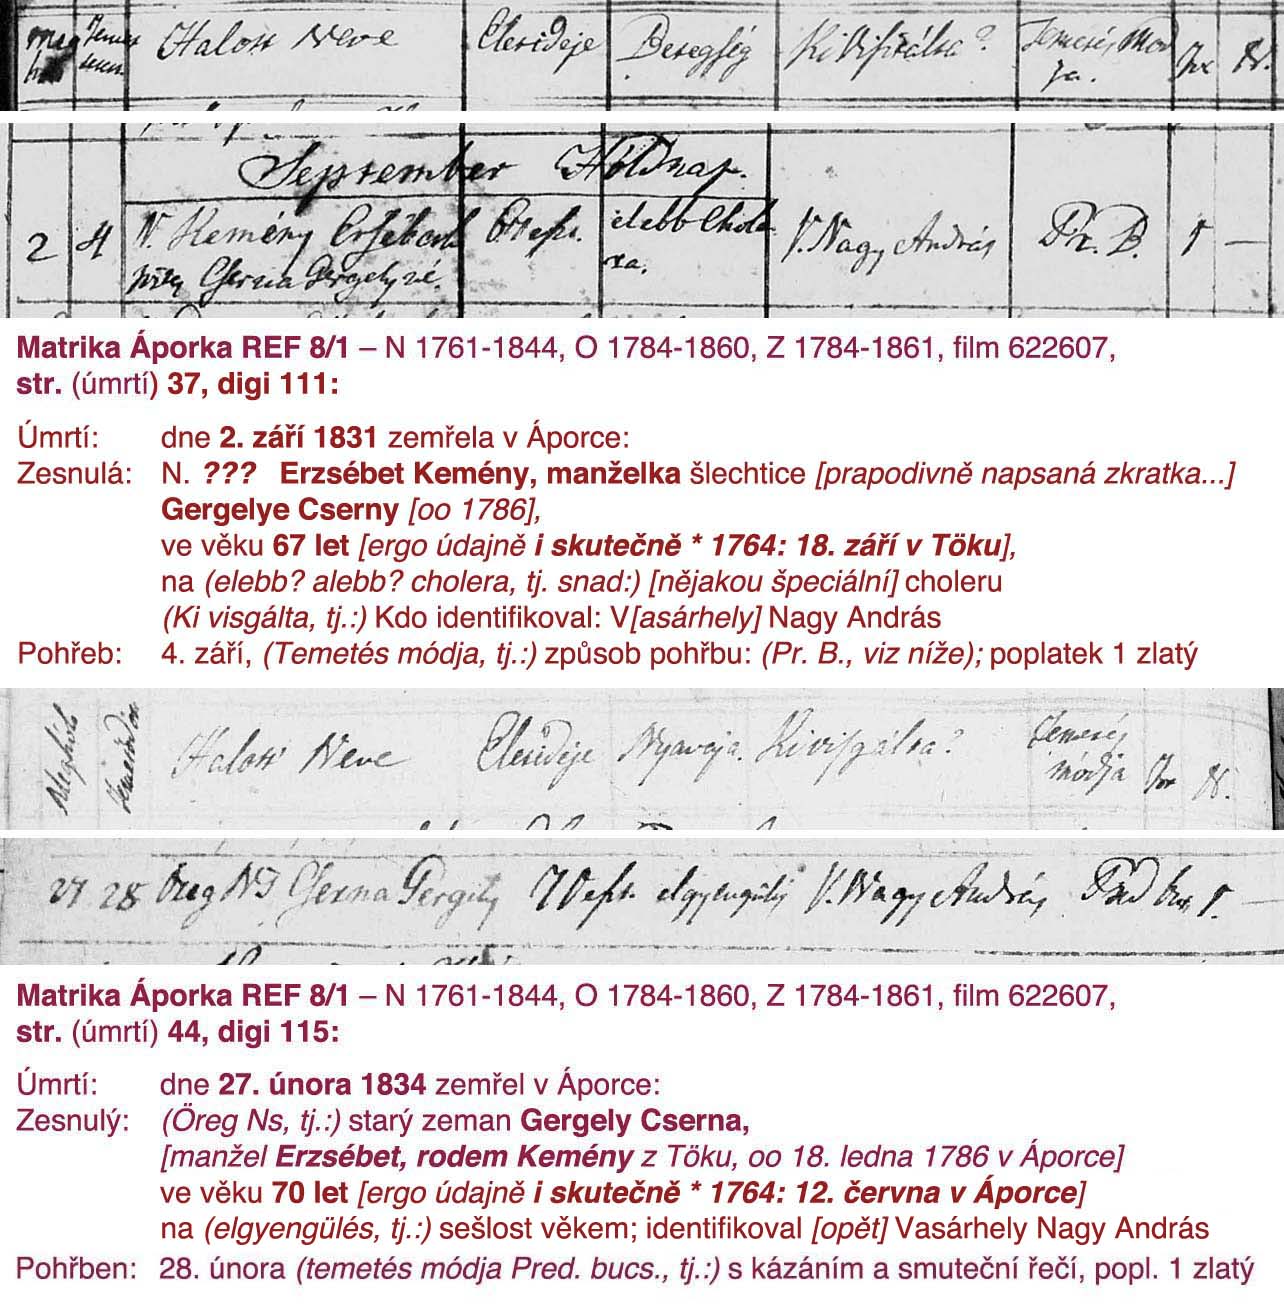 Halott Neve Elete ideje Betegség Ki Visitálta? Temetés Mod
ja.
September Holdnap.
2 4 N. Kemény Ersébeth 67 esz. elebb Chole V. Nagy András Pr. B. 1 —
ra.
Cserna Gergelyné.
Matrika Áporka REF 8/1 – N 1761-1844, O 1784-1860, Z 1784-1861, film 622607,
str. (úmrtí) 37, digi 111:
Úmrtí: dne 2. září 1831 zemřela v Áporce:
Zesnulá: N. ??? Erzsébet Kemény, manželka šlechtice [prapodivně napsaná zkratka...]
Gergelye Cserny [oo 1786],
ve věku 67 let [ergo údajně i skutečně * 1764: 18. září v Töku],
na (elebb? alebb? cholera, tj. snad:) [nějakou špeciální] choleru
(Ki visgálta, tj.:) Kdo identifikoval: V[asárhely] Nagy András
Pohřeb: 4. září, (Temetés módja, tj.:) způsob pohřbu: (Pr. B., viz níže); poplatek 1 zlatý
Halott Neve Elete ideje Nyavaja. Ki visgálta? Temetés
módja
27 28 Öreg Ns Cserna Gergely 70 esz. elgyengülés V. Nagy András Pred buc 1. —
Matrika Áporka REF 8/1 – N 1761-1844, O 1784-1860, Z 1784-1861, film 622607,
str. (úmrtí) 44, digi 115:
Úmrtí: dne 27. února 1834 zemřel v Áporce:
Zesnulý: (Öreg Ns, tj.:) starý zeman Gergely Cserna,
[manžel Erzsébet, rodem Kemény z Töku, oo 18. ledna 1786 v Áporce]
ve věku 70 let [ergo údajně i skutečně * 1764: 12. června v Áporce]
na (elgyengülés, tj.:) sešlost věkem; identifikoval [opět] Vasárhely Nagy András
Pohřben: 28. února (temetés módja Pred. bucs., tj.:) s kázáním a smuteční řečí, popl. 1 zlatý